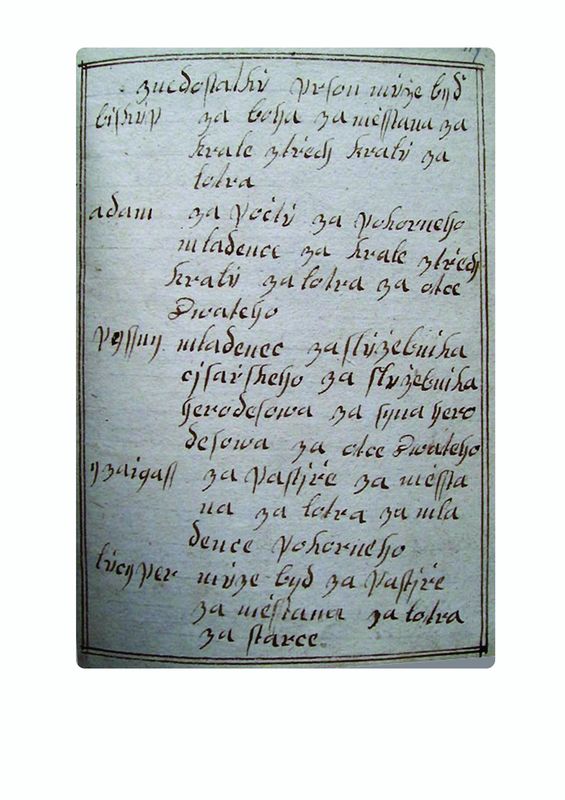 znedostatkú prson múže být
biskúp za boha za mèsstana za
krale ztřech kralú za
lotra
adam za počtú za pokorneho
mladence za krale ztřech
kralú za lotra za otce
Swateho
pyssnij mladenec za slúžebnika
cjsařskeho za slúžebnika
herodesowa za syna hero
desowa za otce Swateho
yzaigass za pastjře za mèssta
na za lotra za mla
dence pokorneho
lúcyper múze byd za pastjře
za mèsstana za lotra
za starce